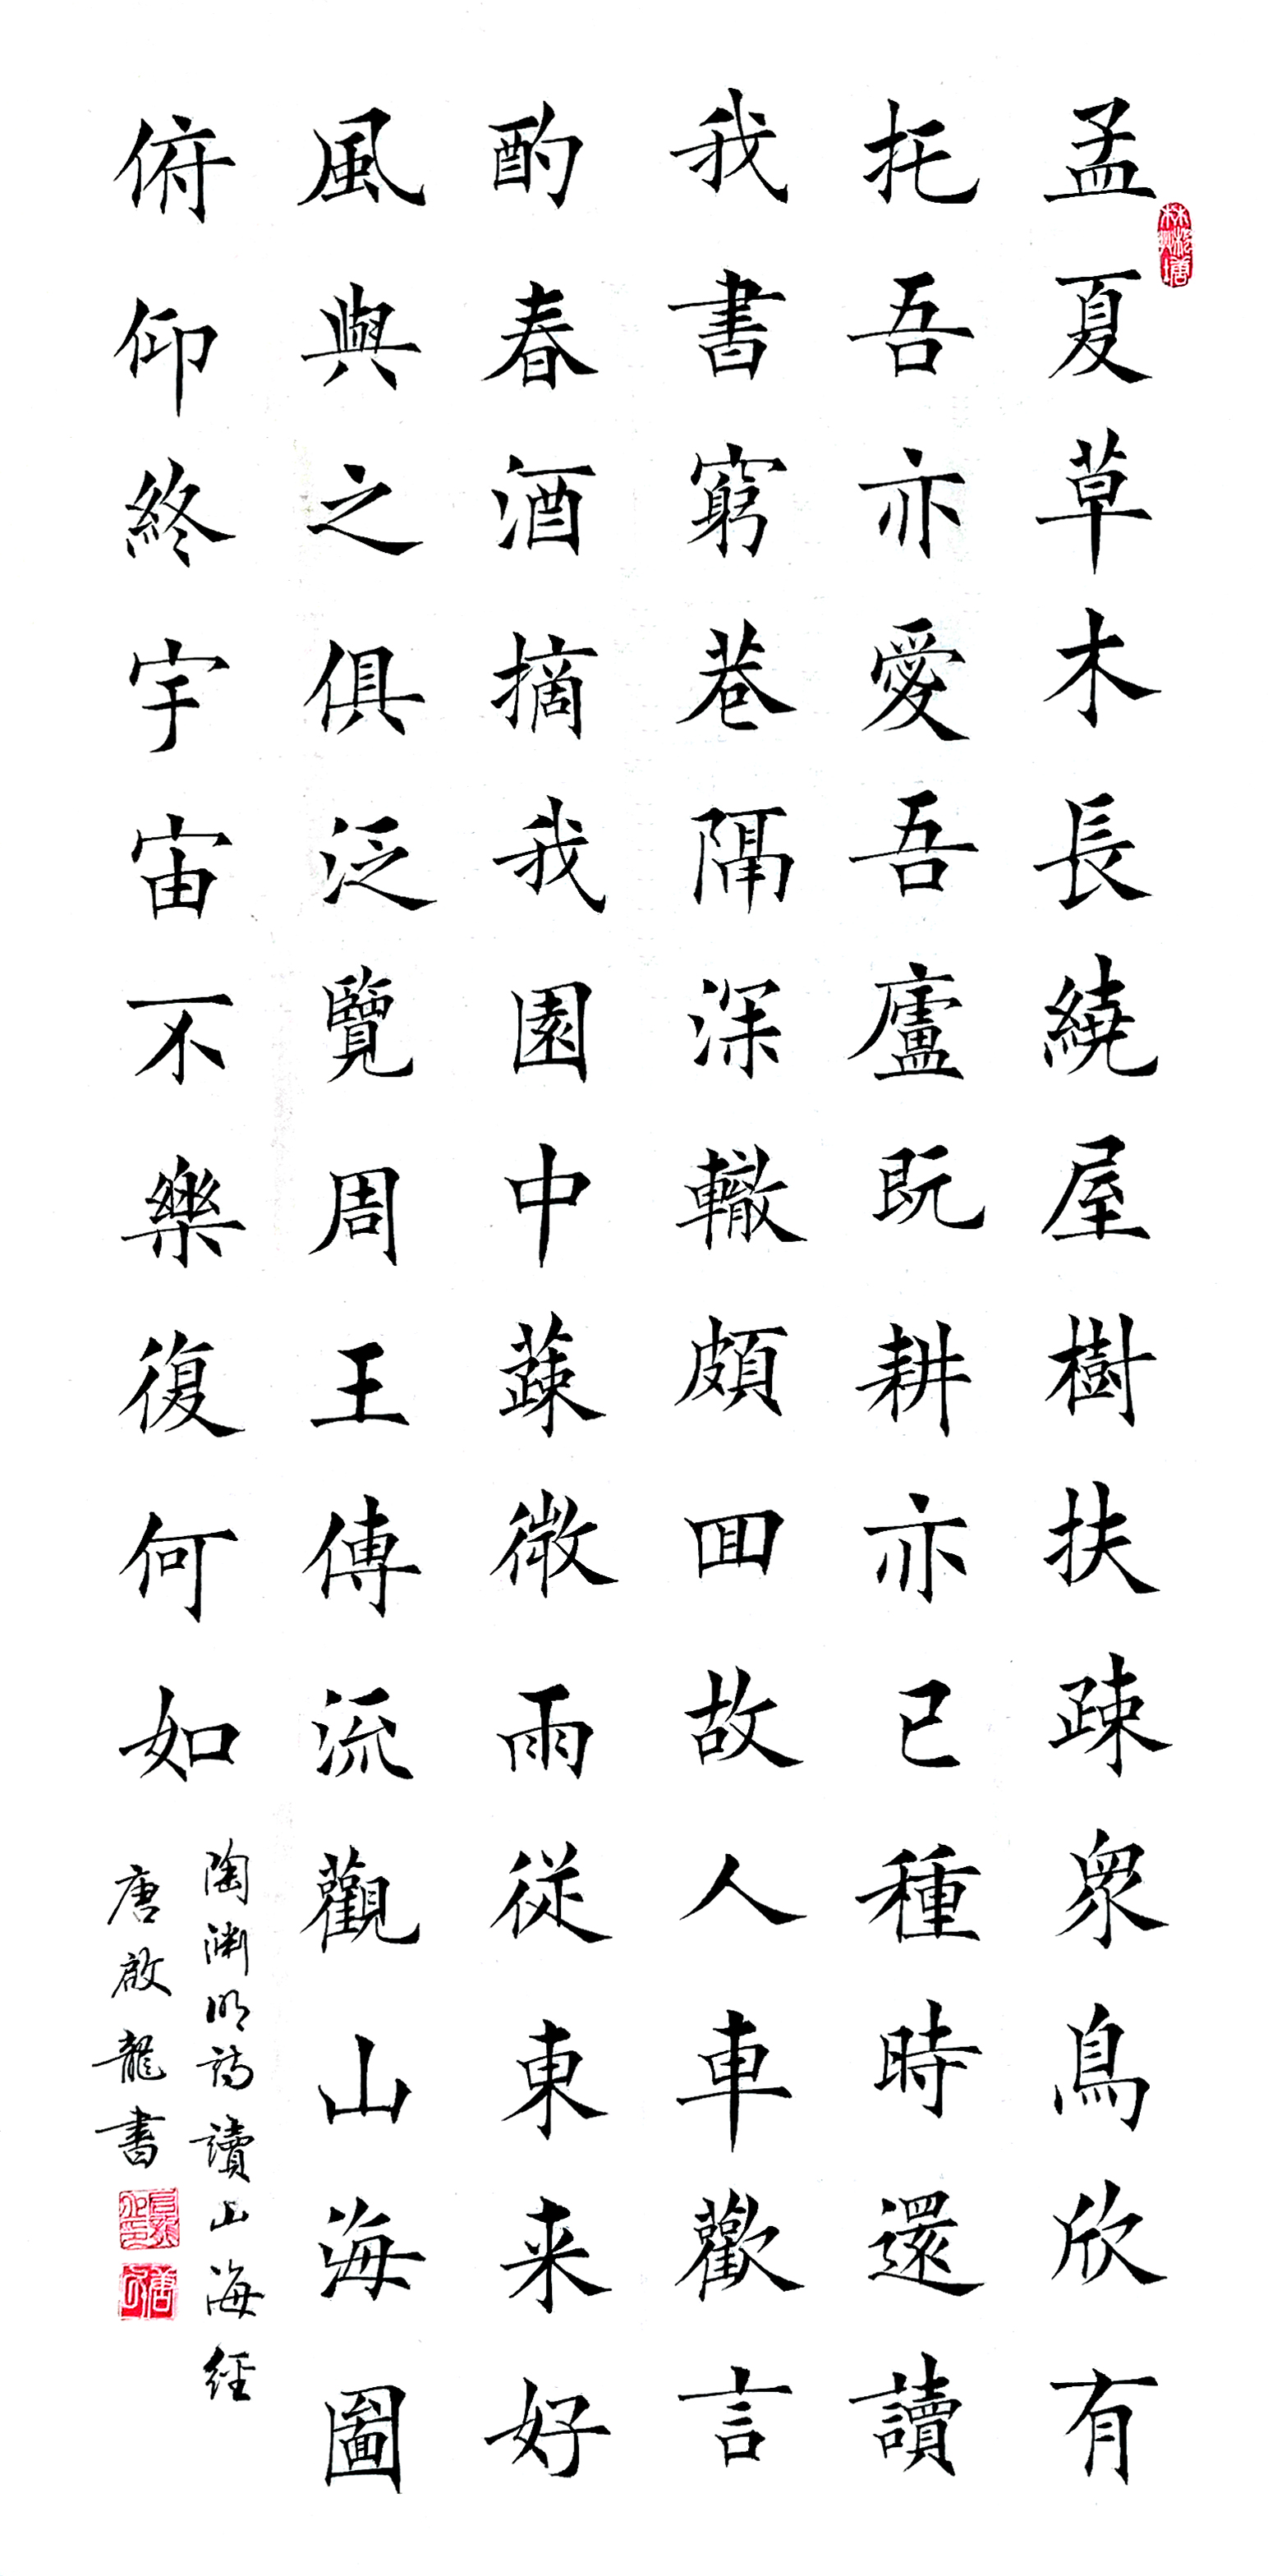 孟夏草木長繞屋樹扶疎衆鳥欣有
托吾亦愛吾廬既耕亦已種時還讀
我書窮巷隔深轍頗囬故人車歡言
酌春酒摘我園中蔬微雨從東来好
風與之俱泛覽周王傳流觀山海圖
俯仰終宇宙不樂復何如
陶渊明詩讀山海經
唐啟龍書